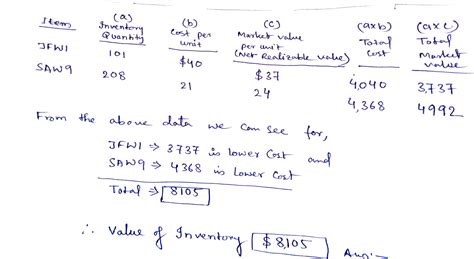 Item (a) Inventory Quantity (b) Cost per unit (c) Market value per unit (Net Realizable value) (axb) Total cost (axc) Total Market value
JFW1 101 $40 $37 4,040 3,737
SAW9 208 21 24 4,368 4992
From the above data we can see for,
JFW1 ⇒ 3737 is lower Cost and
SAW9 ⇒ 4368 is lower Cost
Total ⇒ 8105
∴ Value of Inventory $8,105 Ans:-